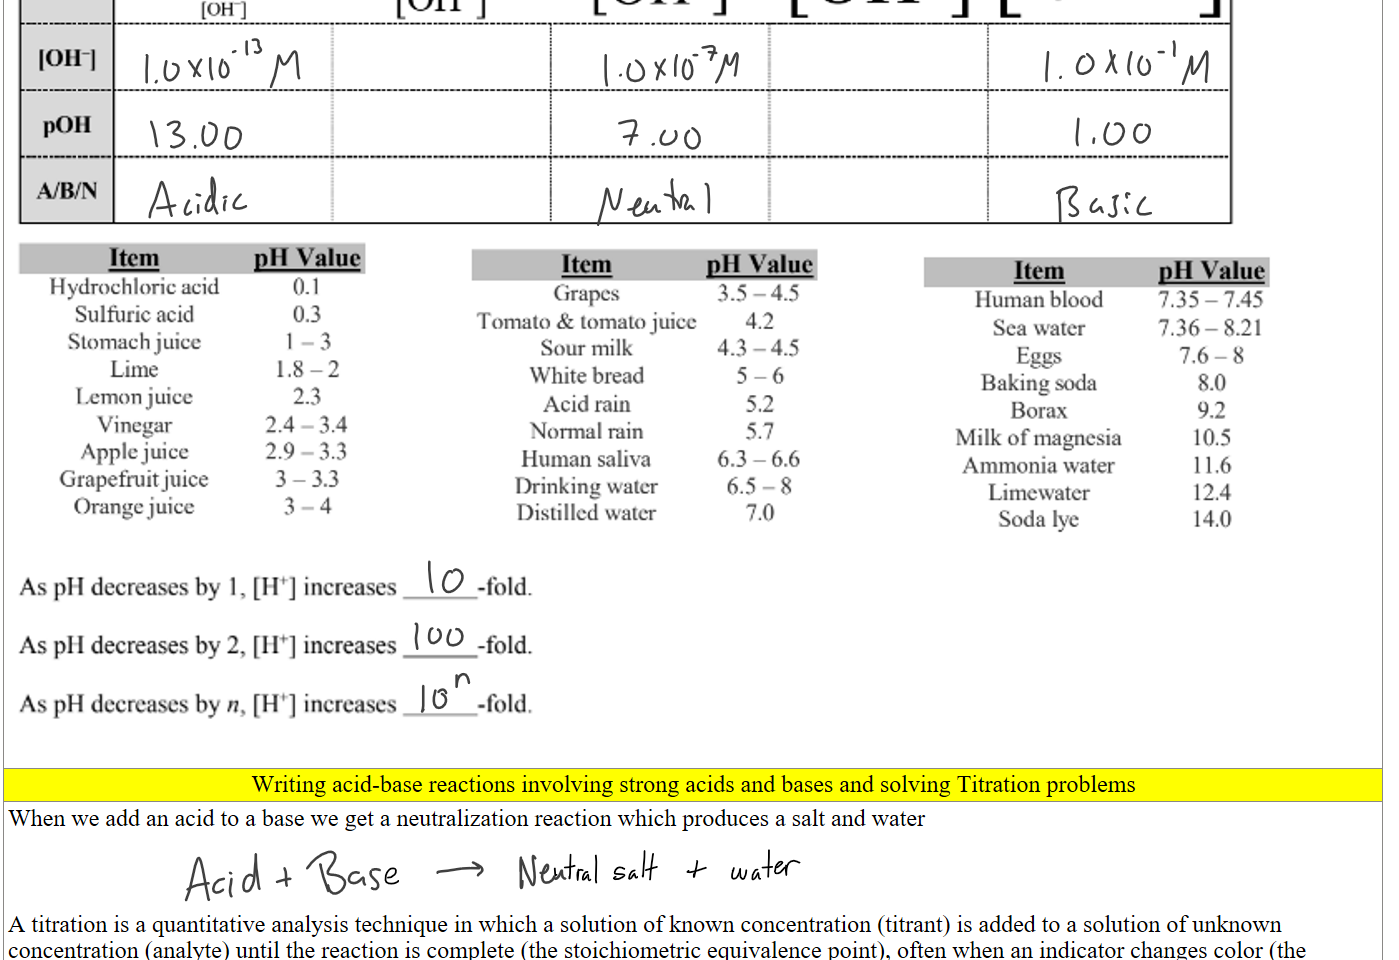 [OH⁻] [OH⁻] [OH⁻] [OH⁻] [ ]
[OH⁻] 1.0x10⁻¹³ M 1.0x10⁻⁷ M 1.0x10⁻¹ M
pOH 13.00 7.00 1.00
A/B/N Acidic Neutral Basic
Item pH Value
Hydrochloric acid 0.1
Sulfuric acid 0.3
Stomach juice 1 – 3
Lime 1.8 – 2
Lemon juice 2.3
Vinegar 2.4 – 3.4
Apple juice 2.9 – 3.3
Grapefruit juice 3 – 3.3
Orange juice 3 – 4
Item pH Value
Grapes 3.5 – 4.5
Tomato & tomato juice 4.2
Sour milk 4.3 – 4.5
White bread 5 – 6
Acid rain 5.2
Normal rain 5.7
Human saliva 6.3 – 6.6
Drinking water 6.5 – 8
Distilled water 7.0
Item pH Value
Human blood 7.35 – 7.45
Sea water 7.36 – 8.21
Eggs 7.6 – 8
Baking soda 8.0
Borax 9.2
Milk of magnesia 10.5
Ammonia water 11.6
Limewater 12.4
Soda lye 14.0
As pH decreases by 1, [H⁺] increases 10 -fold.
As pH decreases by 2, [H⁺] increases 100 -fold.
As pH decreases by n, [H⁺] increases 10ⁿ -fold.
Writing acid-base reactions involving strong acids and bases and solving Titration problems
When we add an acid to a base we get a neutralization reaction which produces a salt and water
Acid + Base → Neutral salt + water
A titration is a quantitative analysis technique in which a solution of known concentration (titrant) is added to a solution of unknown
concentration (analyte) until the reaction is complete (the stoichiometric equivalence point), often when an indicator changes color (the